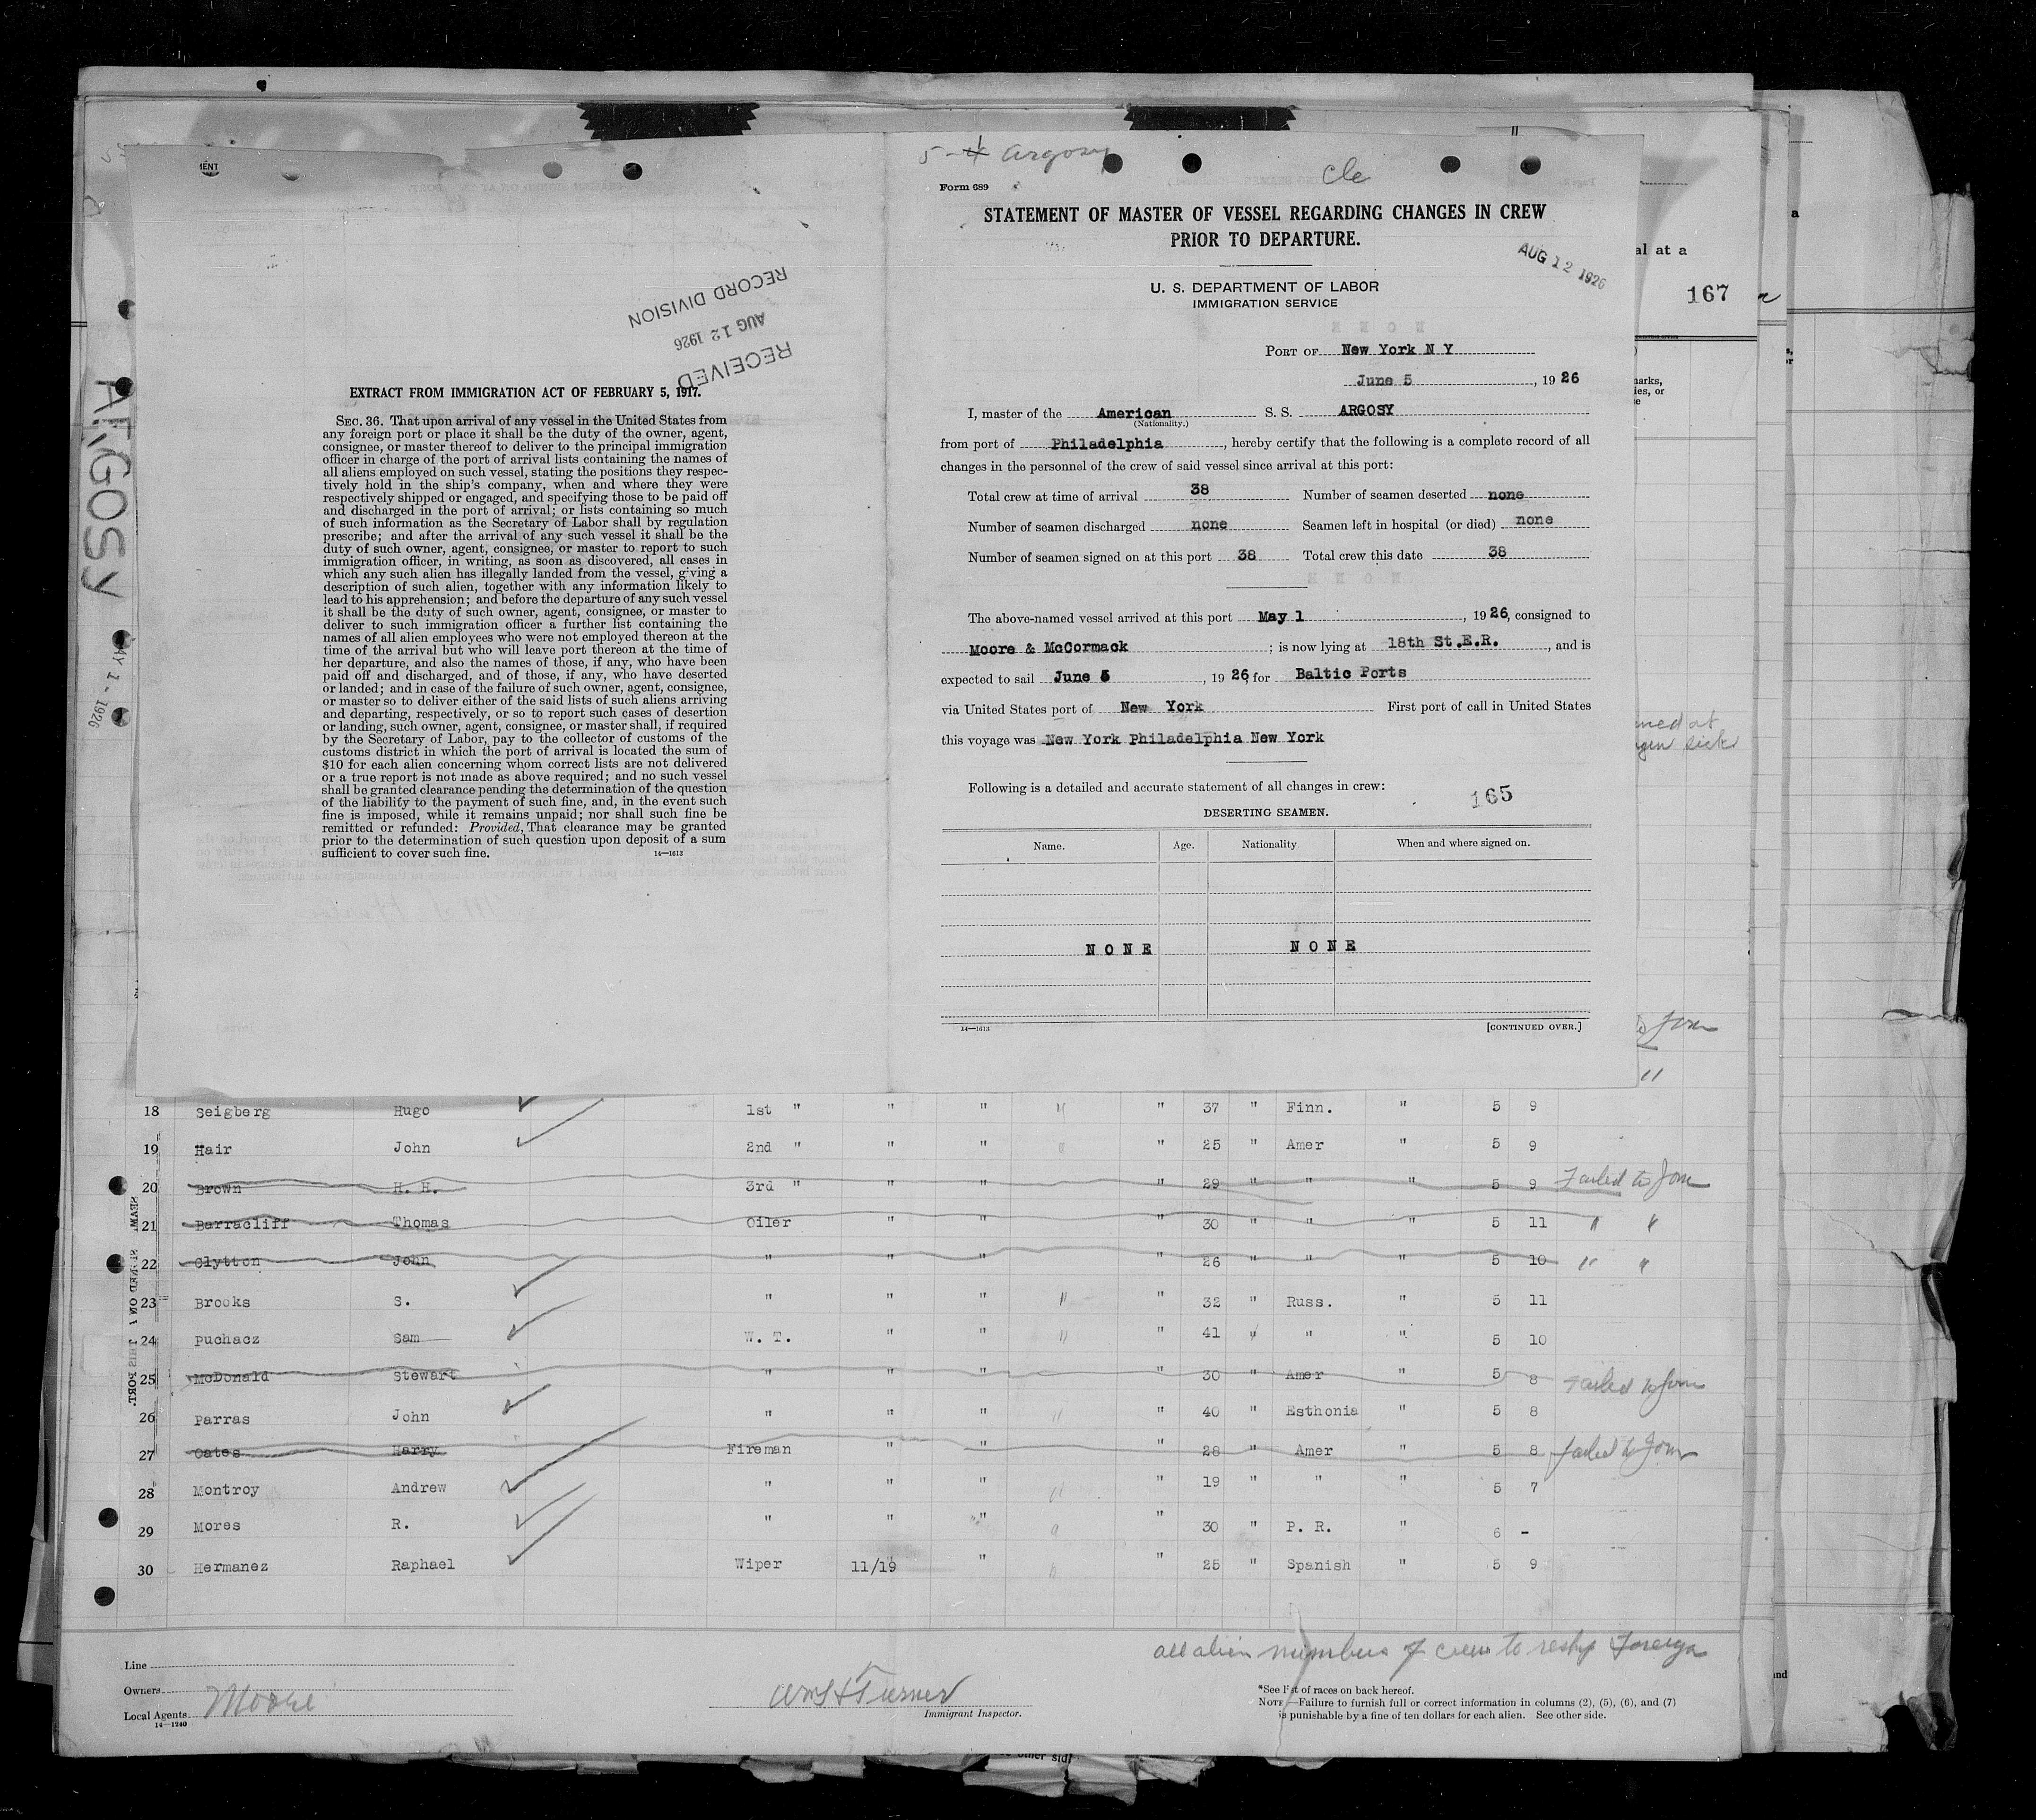 ARGOSY
MAY 1 - 1926
RECORD DIVISION
AUG 12 1926
RECEIVED
EXTRACT FROM IMMIGRATION ACT OF FEBRUARY 5, 1917.
SEC. 36. That upon arrival of any vessel in the United States from
any foreign port or place it shall be the duty of the owner, agent,
consignee, or master thereof to deliver to the principal immigration
officer in charge of the port of arrival lists containing the names of
all aliens employed on such vessel, stating the positions they respec-
tively hold in the ship's company, when and where they were
respectively shipped or engaged, and specifying those to be paid off
and discharged in the port of arrival; or lists containing so much
of such information as the Secretary of Labor shall by regulation
prescribe; and after the arrival of any such vessel it shall be the
duty of such owner, agent, consignee, or master to report to such
immigration officer, in writing, as soon as discovered, all cases in
which any such alien has illegally landed from the vessel, giving a
description of such alien, together with any information likely to
lead to his apprehension; and before the departure of any such vessel
it shall be the duty of such owner, agent, consignee, or master to
deliver to such immigration officer a further list containing the
names of all alien employees who were not employed thereon at the
time of the arrival but who will leave port thereon at the time of
her departure, and also the names of those, if any, who have been
paid off and discharged, and of those, if any, who have deserted
or landed; and in case of the failure of such owner, agent, consignee,
or master so to deliver either of the said lists of such aliens arriving
and departing, respectively, or so to report such cases of desertion
or landing, such owner, agent, consignee, or master shall, if required
by the Secretary of Labor, pay to the collector of customs of the
customs district in which the port of arrival is located the sum of
$10 for each alien concerning whom correct lists are not delivered
or a true report is not made as above required; and no such vessel
shall be granted clearance pending the determination of the question
of the liability to the payment of such fine, and, in the event such
fine is imposed, while it remains unpaid; nor shall such fine be
remitted or refunded: Provided, That clearance may be granted
prior to the determination of such question upon deposit of a sum
sufficient to cover such fine. 14—1613
5-4 Argosy
Cle
Form 689
STATEMENT OF MASTER OF VESSEL REGARDING CHANGES IN CREW
PRIOR TO DEPARTURE.
AUG 12 1926
U. S. DEPARTMENT OF LABOR
IMMIGRATION SERVICE
PORT OF New York N Y
June 5, 1926
I, master of the American S. S. ARGOSY
(Nationality.)
from port of Philadelphia, hereby certify that the following is a complete record of all
changes in the personnel of the crew of said vessel since arrival at this port:
Total crew at time of arrival 38 Number of seamen deserted none
Number of seamen discharged none Seamen left in hospital (or died) none
Number of seamen signed on at this port 38 Total crew this date 38
The above-named vessel arrived at this port May 1, 1926, consigned to
Moore & McCormack; is now lying at 18th St.E.R., and is
expected to sail June 5, 1926, for Baltic Ports
via United States port of New York First port of call in United States
this voyage was New York Philadelphia New York
Following is a detailed and accurate statement of all changes in crew:
165
DESERTING SEAMEN.
Name. Age. Nationality When and where signed on.
NONE NONE
14—1613 [CONTINUED OVER.]
al at a
167
18 Seigberg Hugo 1st " " " " " 37 " Finn. " 5 9
19 Hair John 2nd " " " " " 25 " Amer " 5 9
20 Brown H. H. 3rd " " " " 29 " " " 5 9 Failed to Join
21 Barracliff Thomas Oiler " " " 30 " " " 5 11 " "
22 Clytton John " " " " 26 " " " 5 10 " "
23 Brooks S. " " " " " 32 " Russ. " 5 11
24 Puchacz Sam W. T. " " " " 41 " " " 5 10
25 McDonald Stewart " " " " 30 " Amer " 5 8 Failed to Join
26 Parras John " " " " " 40 " Esthonia " 5 8
27 Oates Harry Fireman " " " 28 " Amer " 5 8 failed to Join
28 Montroy Andrew " " " " " 19 " " " 5 7
29 Mores R. " " " " " 30 " P. R. " 6 -
30 Hermanez Raphael Wiper 11/19 " " " 25 " Spanish " 5 9
all alien members of crew to reship Foreign
Line
Owners
Local Agents Moore
14—1240
Wm S Turner
Immigrant Inspector.
*See list of races on back hereof.
NOTE.—Failure to furnish full or correct information in columns (2), (5), (6), and (7)
is punishable by a fine of ten dollars for each alien. See other side.